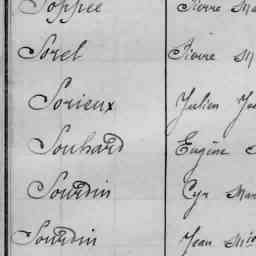 Soppée Pierre Ma
Sorel Pierre M
Sorieux Julien Jo
Souhard Eugène
Sourdin Cyr Mar
Sourdin Jean Mi